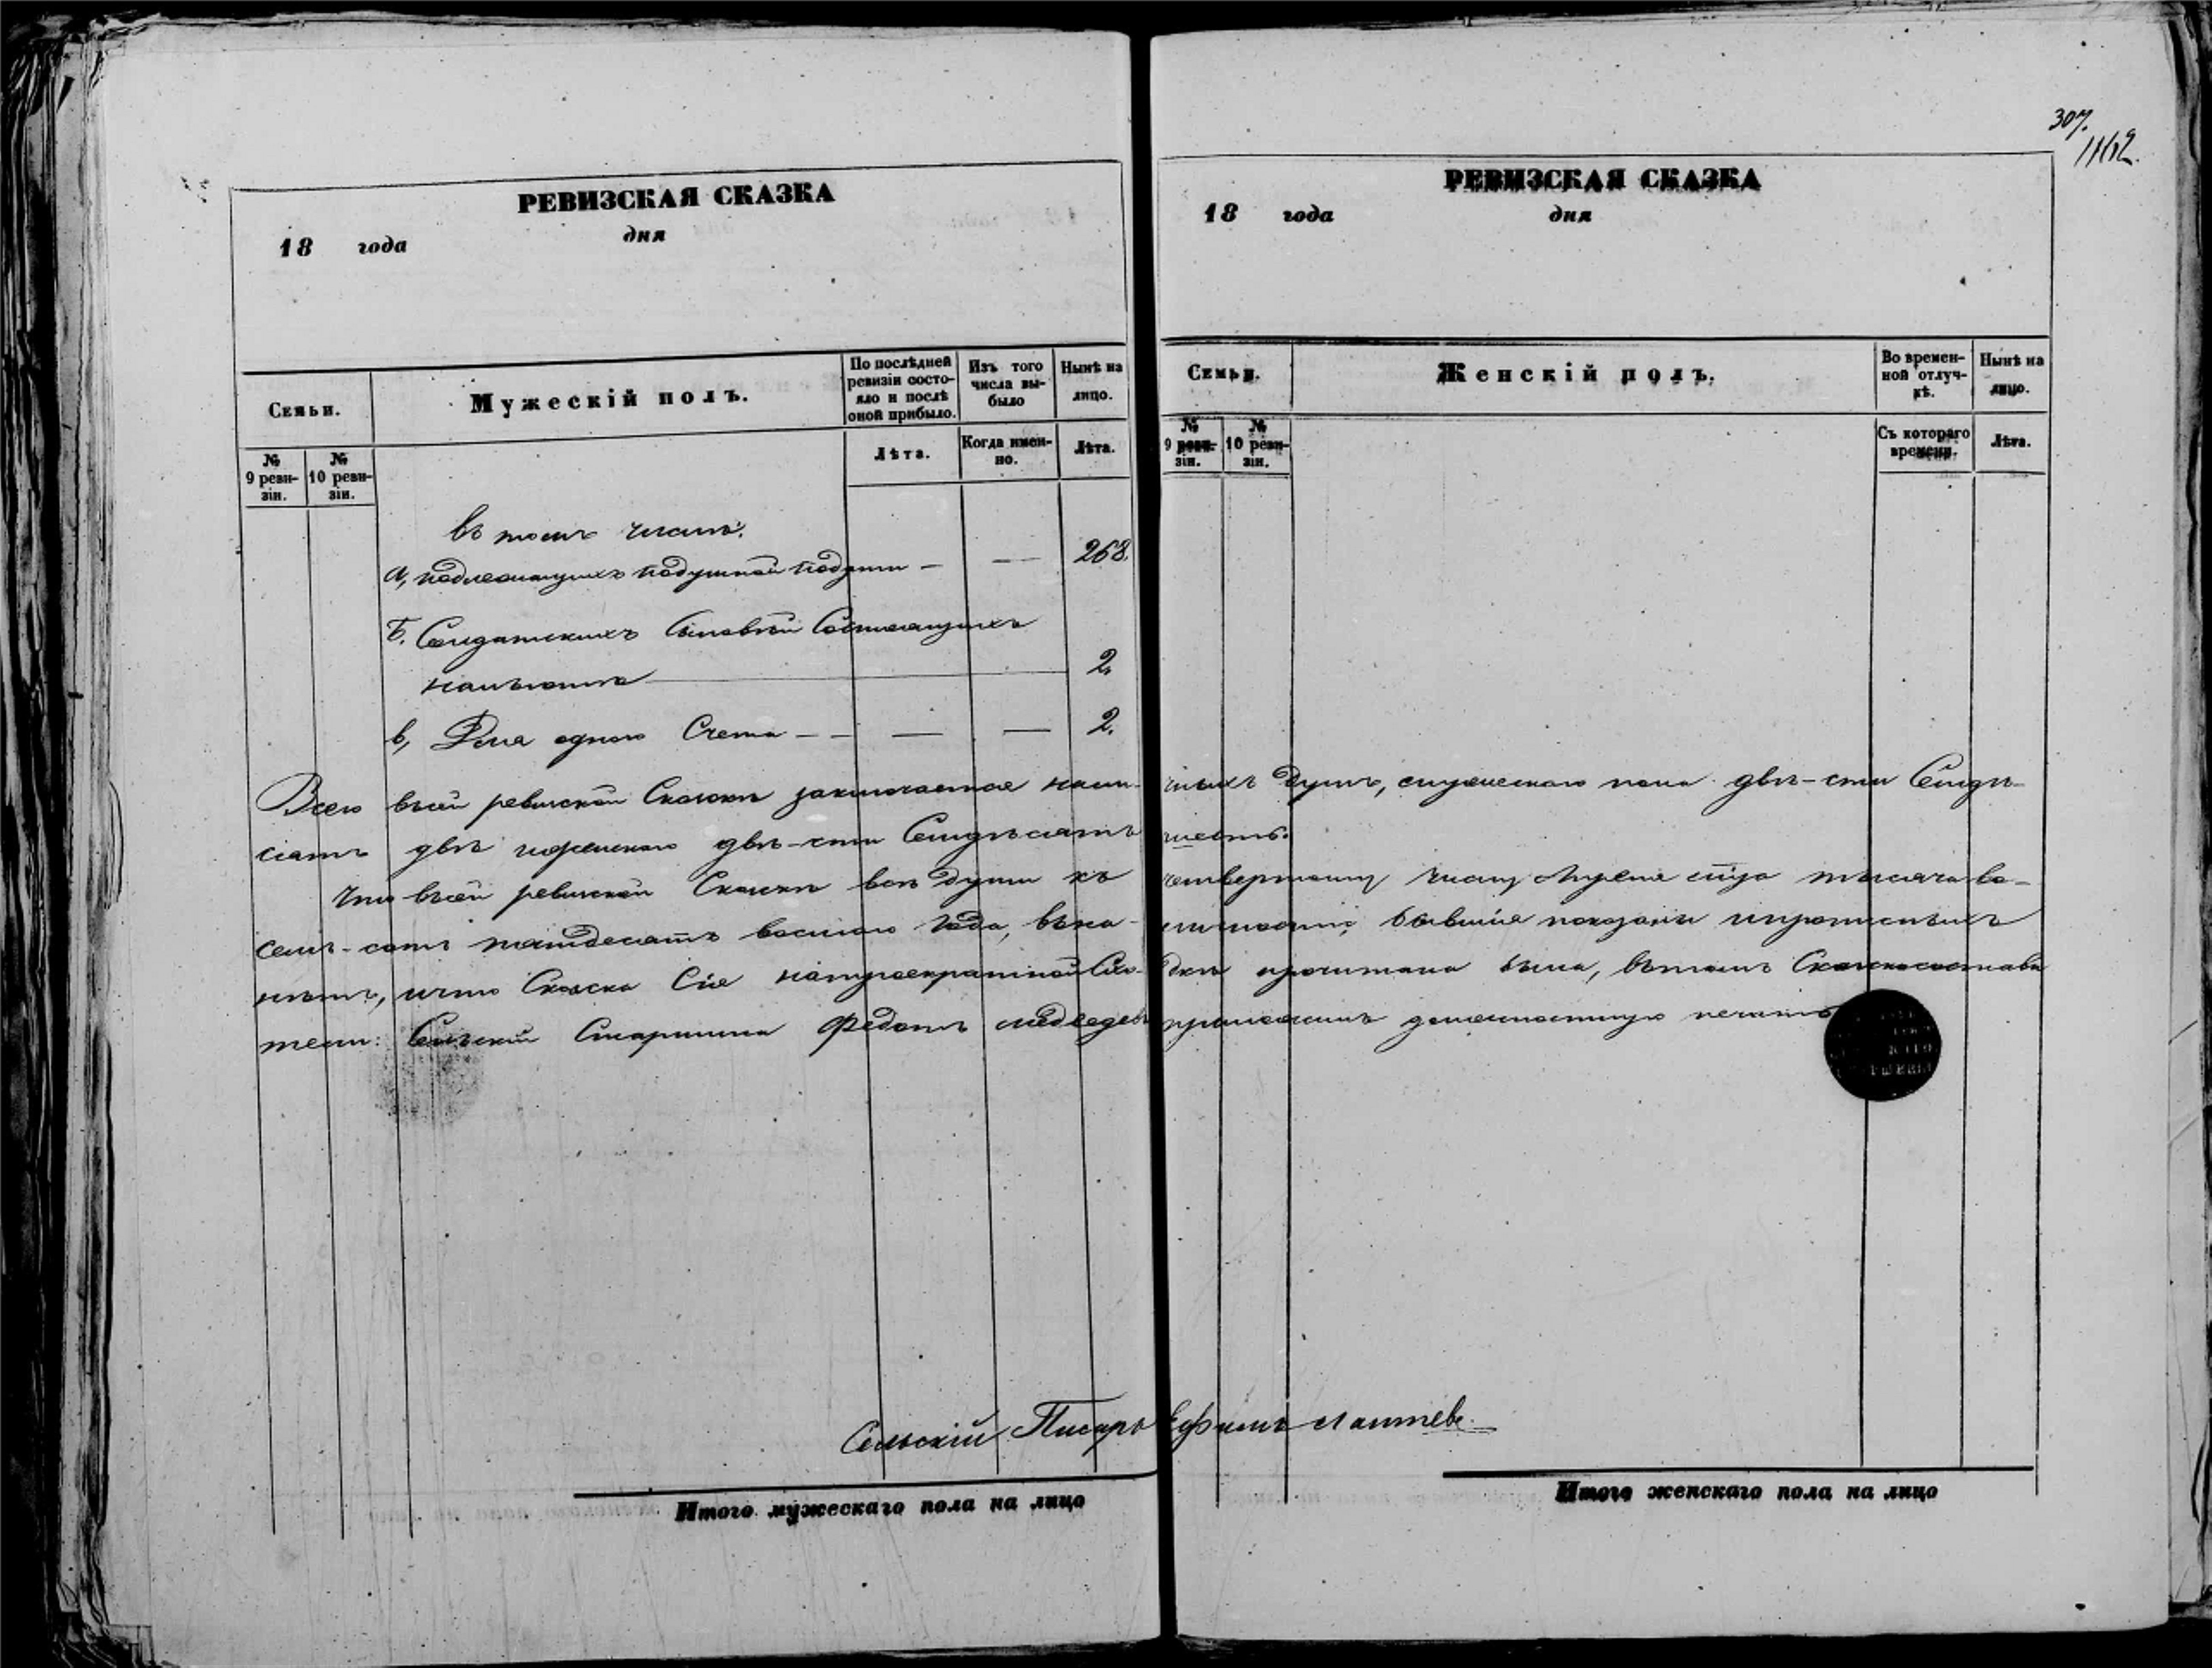 307.
1162.
РЕВИЗСКАЯ СКАЗКА
18 года дня
Семьи.
Мужескій полъ.
По послѣдней ревизіи состояло и послѣ оной прибыло.
Изъ того числа выбыло
Нынѣ на лицо.
№ 9 ревизіи.
№ 10 ревизіи.
Лѣта.
Когда именно.
Лѣта.
РЕВИЗСКАЯ СКАЗКА
18 года дня
Семьи.
Женскій полъ.
Во временной отлучкѣ.
Нынѣ на лицо.
№ 9 ревизіи.
№ 10 ревизіи.
Съ котораго времени.
Лѣта.
въ томъ числѣ:
а, подлежащихъ подушной подати — — 268.
Б. Солдатскихъ Сыновей Состоящихъ
2.
в, Для одного Счета — — — — 2.
Всего въсей ревиской Скаскѣ заключается наличныхъ душъ, мужескаго пола двѣ-сти Семдѣ-
сятъ двѣ иженскаго двѣ-сти Семдѣсятъ шесть.
Что въсей ревиской Скаскѣ всѣ души къ четвертому числу м͠ца тысяча во-
семь-сотъ пятдесятъ восмого года, вна- бывшія показаны ипрописныхъ
нѣтъ, ичто Скаска Сія натроекратной Схо- дкѣ прочитана была, вътомъ Скаскосостави
тели: Сельскій Старшина Федотъ медведевъ приложилъ должностную печать
Сельскій Писарь Ефимъ Лаптевъ
Итого мужескаго пола на лицо
Итого женскаго пола на лицо